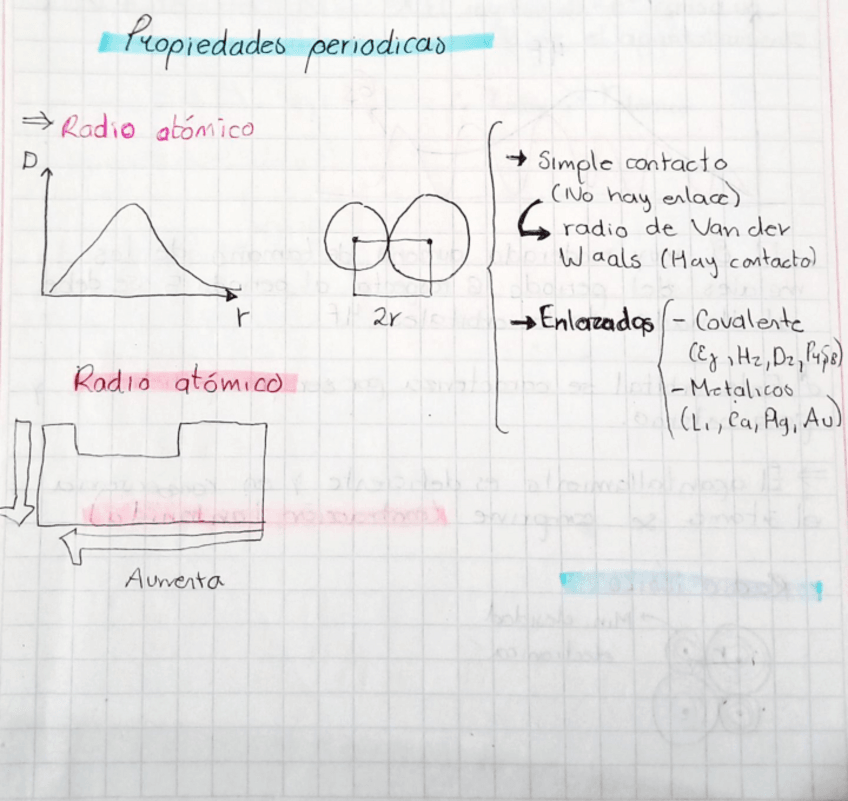 Propiedades periodicas
⇒ Radio atómico
D
r
2r
→ Simple contacto
(No hay enlace)
radio de Van der
Waals (Hay contacto)
→ Enlazados
- Covalente
H2, D2,
- Metálicos
(Li, Ca, Ag, Au)
Radio atómico
Aumenta